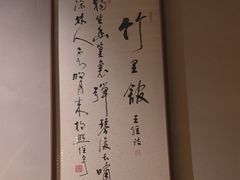 竹里館 王維詩
獨坐幽篁裏彈琴復長嘯
深林人不知明月來相照